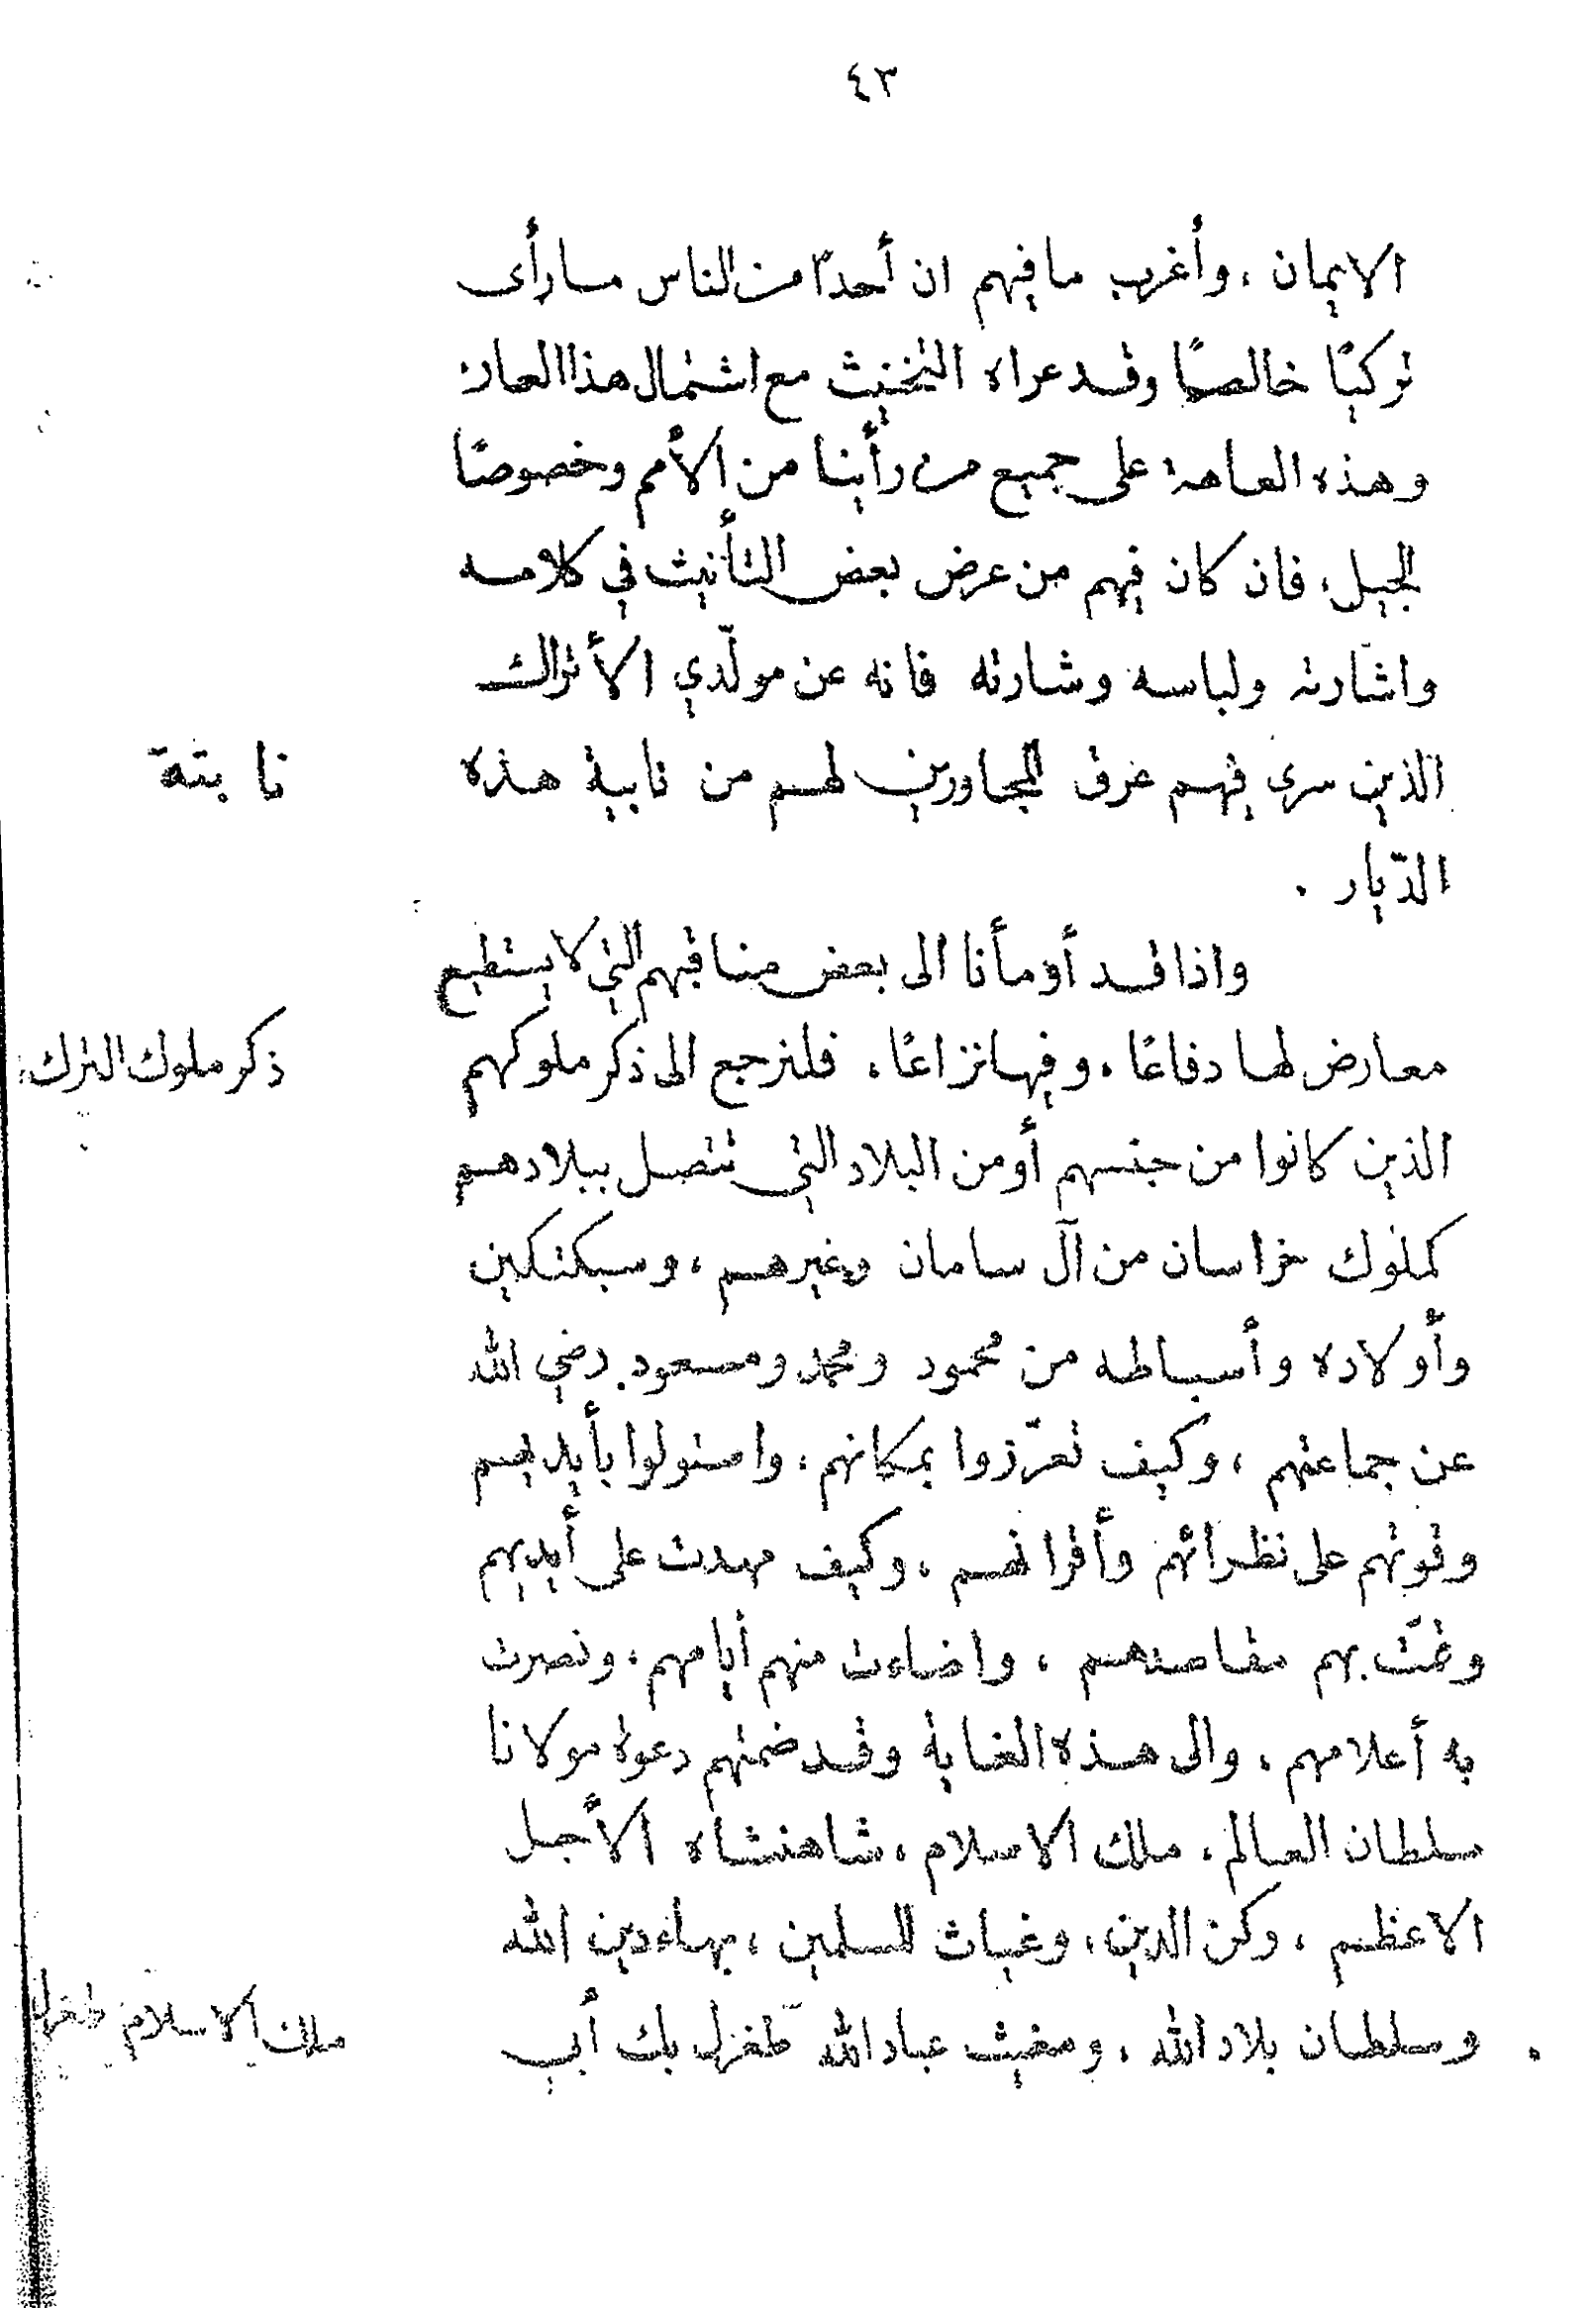 ٤٣
الايمان ، وأغرب ما فيهم ان أحدًا من الناس ما رأى
تركيًا خالصًا وقد عراه التخنث مع اشتمال هذا العار
وهذه العاهة على جميع من رأينا من الأمم وخصوصًا
الجيل ، فان كان فيهم من عرض بعض التأنيث في كلامه
واشارته ولباسه وشارته فانه عن مولّدي الأتراك
الذين سرى فيهم عرق المجاورين لهم من نابية هذه
نابتة
الدّيار .
واذا قد أومأنا الى بعض مناقبهم التي لا يستطيع
معارض لها دفاعًا ، وفيها نزاعًا ، فلنرجع الى ذكر ملوكهم
ذكر ملوك الترك
الذين كانوا من جنسهم أو من البلاد التي تتصل ببلادهم
كملوك خراسان من آل سامان وغيرهم ، وسبكتكين
وأولاده وأسباطه من محمود ومحمد ومسعود رضي الله
عن جماعتهم ، وكيف تعزّزوا بمكانهم ، واستولوا بأيديهم
وقوتهم على نظرائهم وأقرانهم ، وكيف مهدت على أيديهم
وتمّت بهم مقاصدهم ، واضاءت منهم أيامهم ، ونصرت
به أعلامهم ، والى هذه الغاية وقد ضمتهم دعوة مولانا
سلطان العالم ، ملك الاسلام ، شاهنشاه الأجل
الاعظم ، ركن الدين ، وغياث المسلمين ، بهاء دين الله
وسلطان بلاد الله ، ومغيث عباد الله طغرل بك أبي
ملك الاسلام طغرل